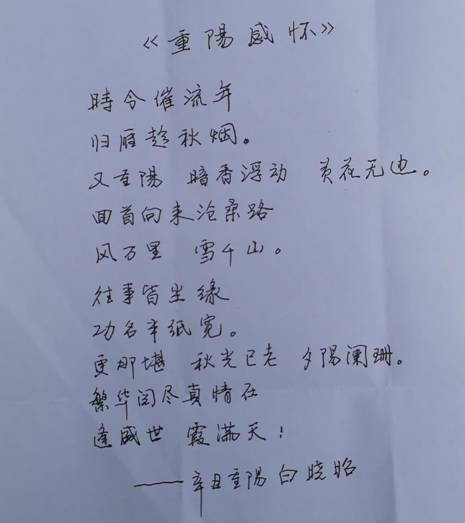 《重陽感怀》
時令催流年
归雁趁秋烟。
又重陽 暗香浮动 黄花无边。
回首向来沧桑路
风万里 雪千山。
往事皆尘缘
功名半纸宽。
更那堪 秋光已老 夕陽阑珊。
繁华阅尽真情在
逢盛世 霞满天！
——辛丑重陽 白晓昭